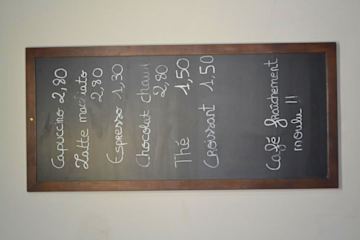 Capuccino 2,80
Latte macchiato
2,80
Espresso 1,30
Chocolat chaud
2,80
Thé 1,50
Croissant 1,50
Café fraîchement
moulu !!